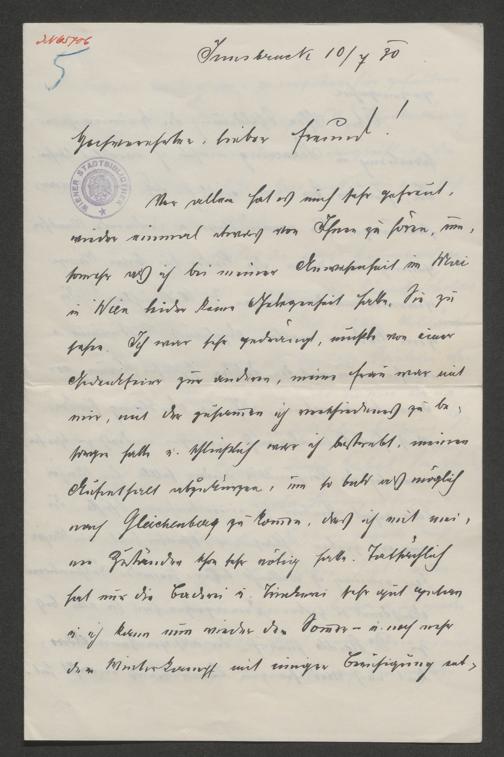 Innsbruck 10/7 30
5
Hochverehrter, lieber Freund!
WIENER STADTBIBLIOTHEK
Vor allem hat es mich sehr gefreut,
wieder einmal etwas von Ihnen zu hören, um-
somehr als ich bei meiner Anwesenheit im Mai
in Wien leider keine Gelegenheit hatte, Sie zu
sehen. Ich war sehr gedrängt, mußte von einer
Gedenkfeier zur anderen, meine Frau war mit
mir, mit der zusammen ich verschiedenes zu be-
sorgen hatte u. schließlich war ich bestrebt, meinen
Aufenthalt abzukürzen, um so bald als möglich
nach Gleichenberg zu kommen, das ich mit mei-
nen Zuständen sehr nötig hatte. Tatsächlich
hat mir die Baderei u. Trinkerei sehr gut getan
u. ich kann nun wieder den Sommer- u. noch mehr
den Winterkampf mit einiger Beruhigung ent-